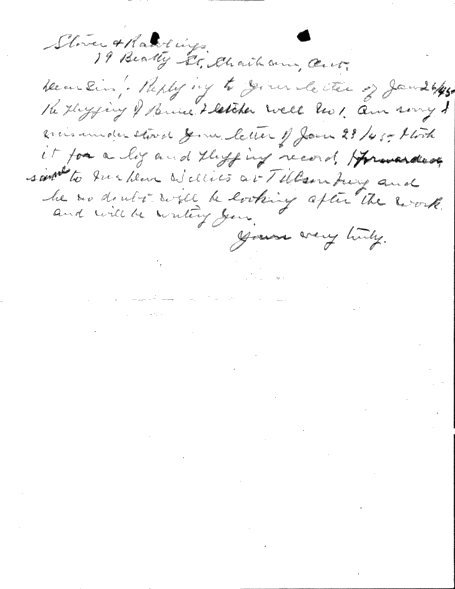 Stover & Rawlings,
19 Beatty St, Chatham, Ont.
Dear Sir! Replying to your letter of Jan 26/45
Re Plugging of Bruce Fletcher well No 1. am sorry I
misunderstood your letter of Jan 23/45 I took
it for a log and plugging record forwarded
same to Willits at Tillsonburg and
he no doubt will be looking after the work
and will be writing you.
Yours very truly.